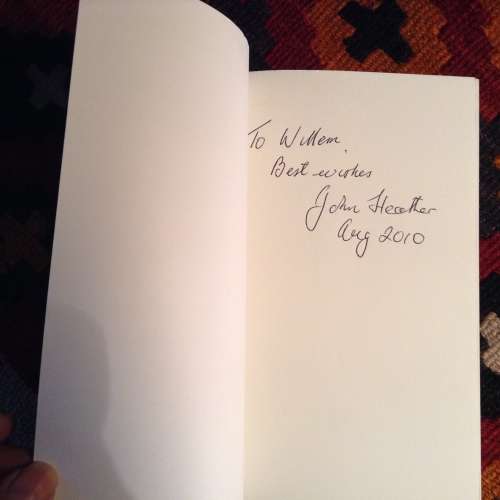 To Willem,
Best wishes
John Heather
Aug 2010